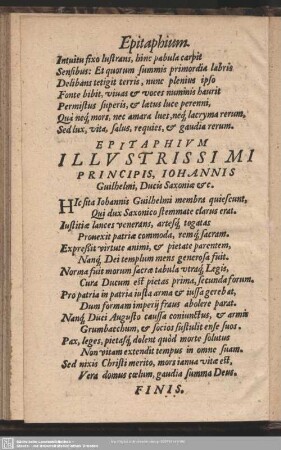 Epitaphium.
Intuitu fixo lustrans, hinc pabula carpit
Sensibus: Et quorum summis primordia labris
Delibans tetigit terris, nunc plenius ipso
Fonte bibit, viuas & voces numinis haurit
Permistus superis, & latus luce perenni,
Qua neq́; mors, nec amara lues, neq́; lacryma rerum,
Sed lux, vita, salus, requies, & gaudia rerum.
EPITAPHIVM
ILLVSTRISSIMI
PRINCIPIS, IOHANNIS
Guilhelmi, Ducis Saxoniæ &c.
HIc sita Iohannis Guilhelmi membra quiescunt,
Qui dux Saxonico stemmate clarus erat.
Iustitiæ lances venerans, artesq́; togatas
Prouexit patriæ commoda, remq́; sacram.
Expressit virtute animi, & pietate parentem,
Nanq́; Dei templum mens generosa fuit.
Norma fuit morum sacræ tabula vtraq́; Legis,
Cura Ducum est pietas prima, secunda forum.
Pro patria in patria iusta arma & iussa gerebat,
Dum formam imperij fraus abolere parat.
Nanq́; Duci Augusto caussa coniunctus, & armis
Grumbacchum, & socios sustulit ense suos.
Pax, leges, pietasq́; dolent quòd morte solutus
Non vitam extendit tempus in omne suam.
Sed nixis Christi merito, mors ianua vitæ est,
Vera domus cœlum, gaudia summa Deus.
FINIS.